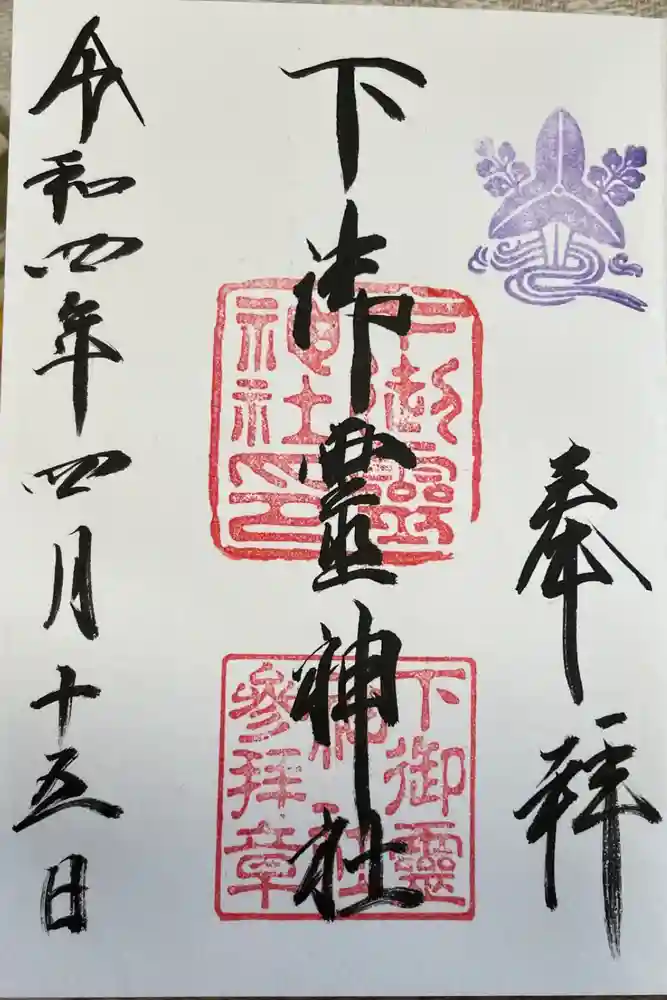 奉拝
下御霊神社
下御靈神社印
下御靈神社參拜章
令和四年四月十五日